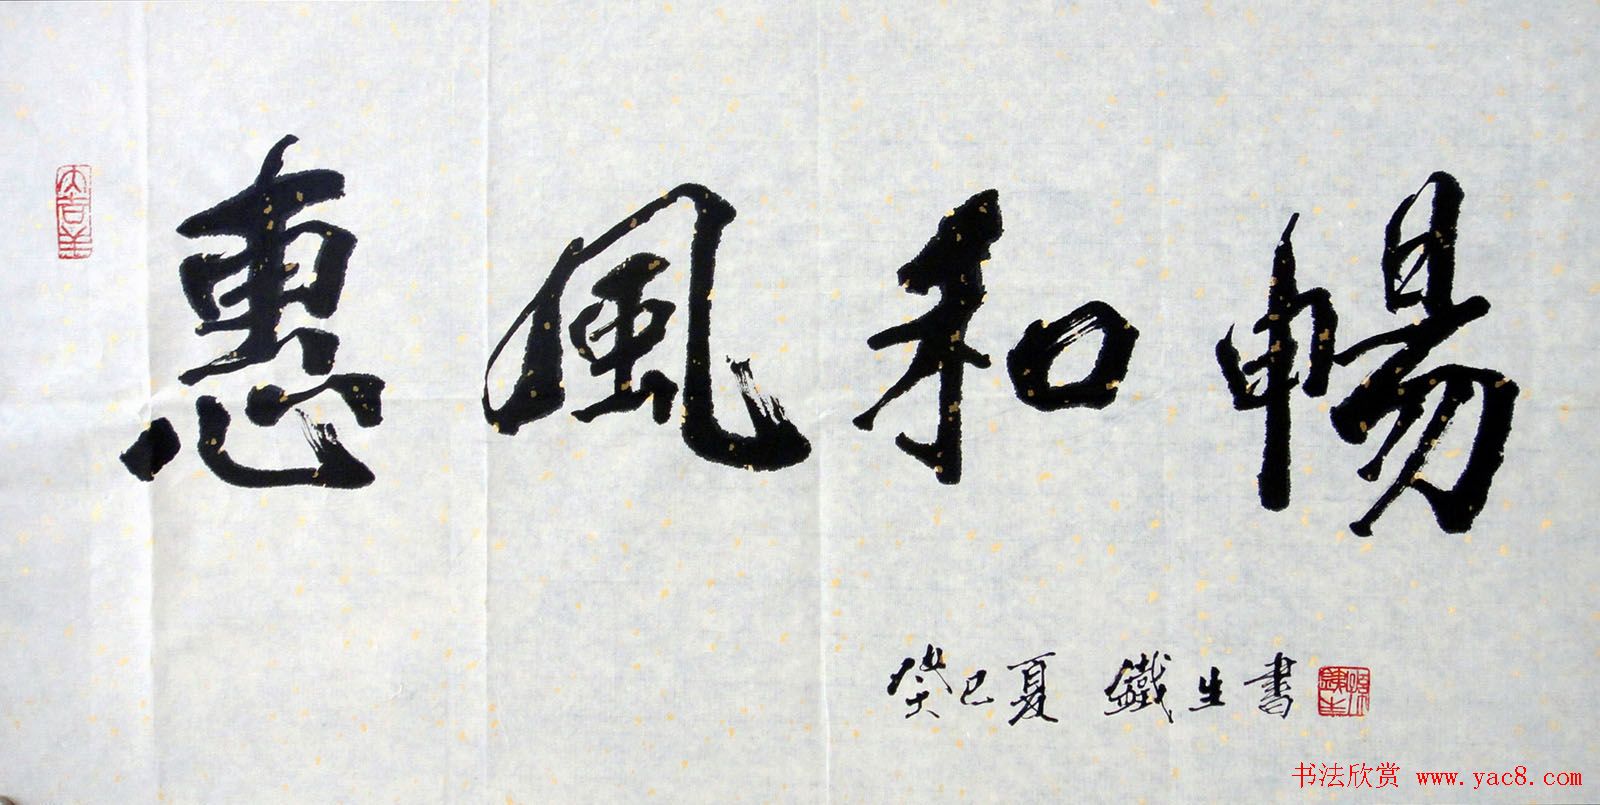 惠風和暢
癸巳夏 鐵生書
书法欣赏 www.yac8.com